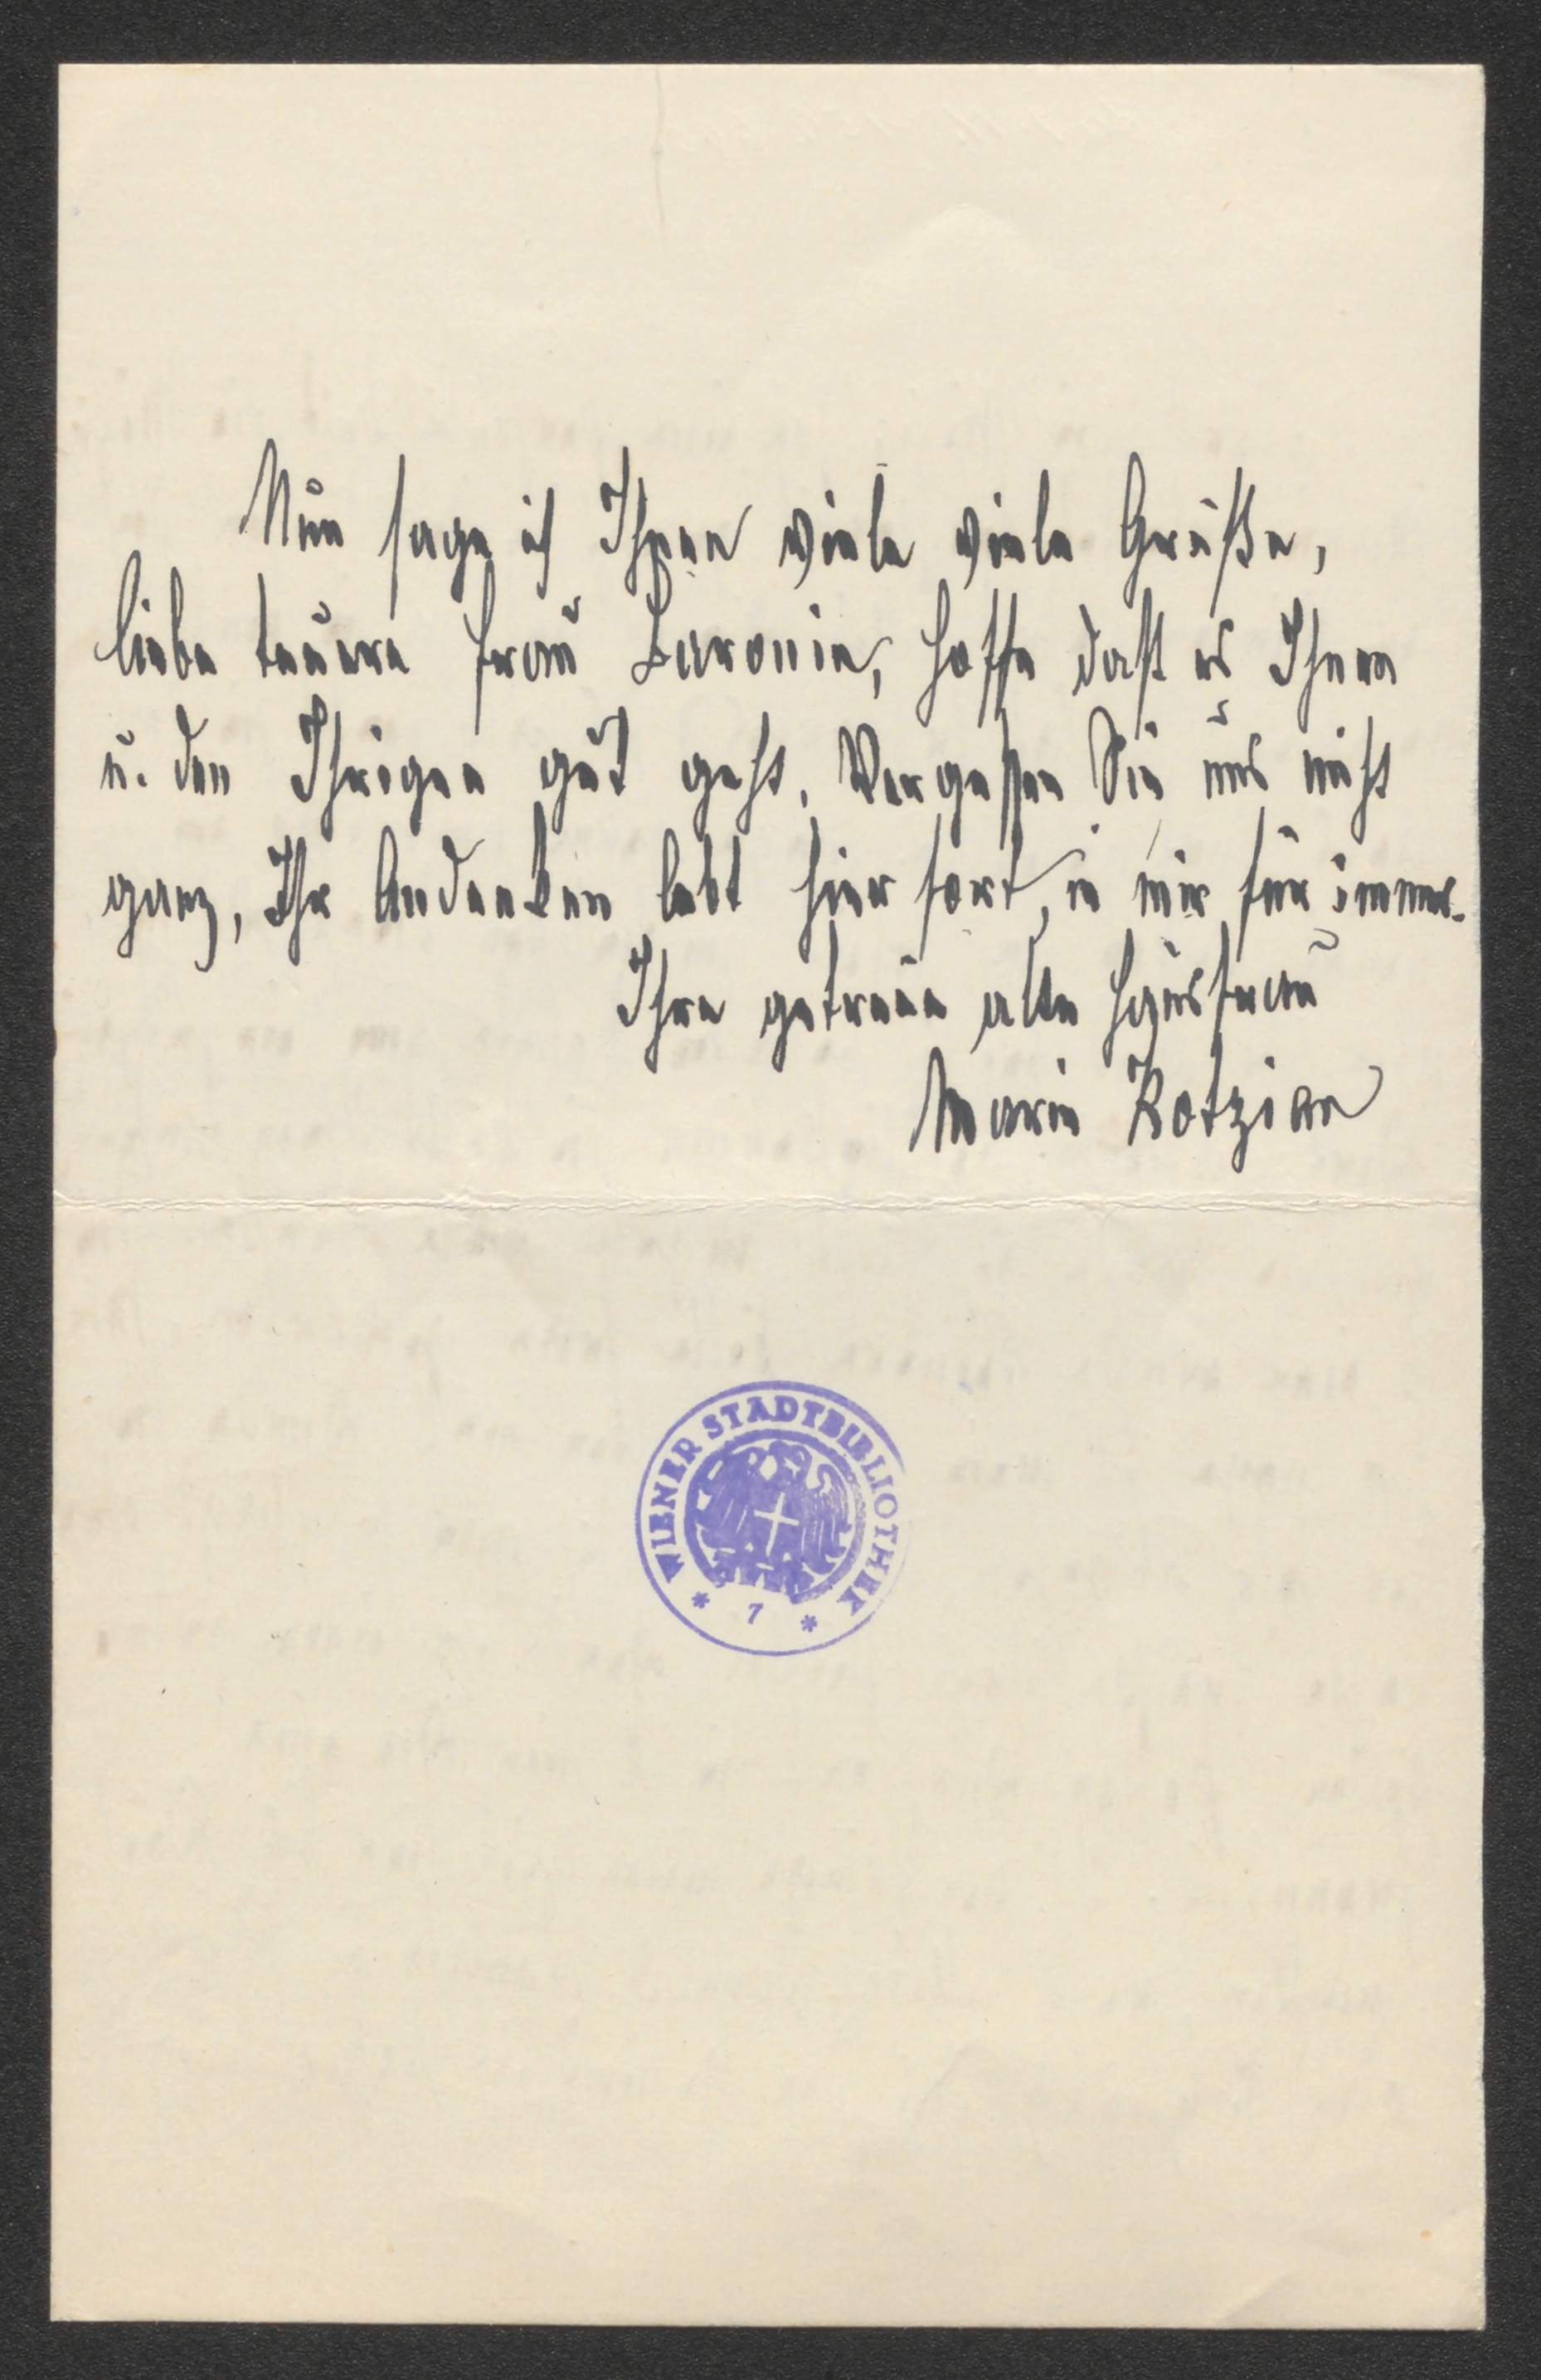 Nun sage ich Ihnen viele viele Grüße,
liebe teuere Frau Baronin, hoffe daß es Ihnen
u. den Ihrigen gut geht. Vergeßen Sie uns nicht
ganz, Ihr Andenken lebt hier fort, in mir für immer.
Ihre getreue alte Hausfrau
Marie Kotzian
WIENER STADTBIBLIOTHEK
* 7 *